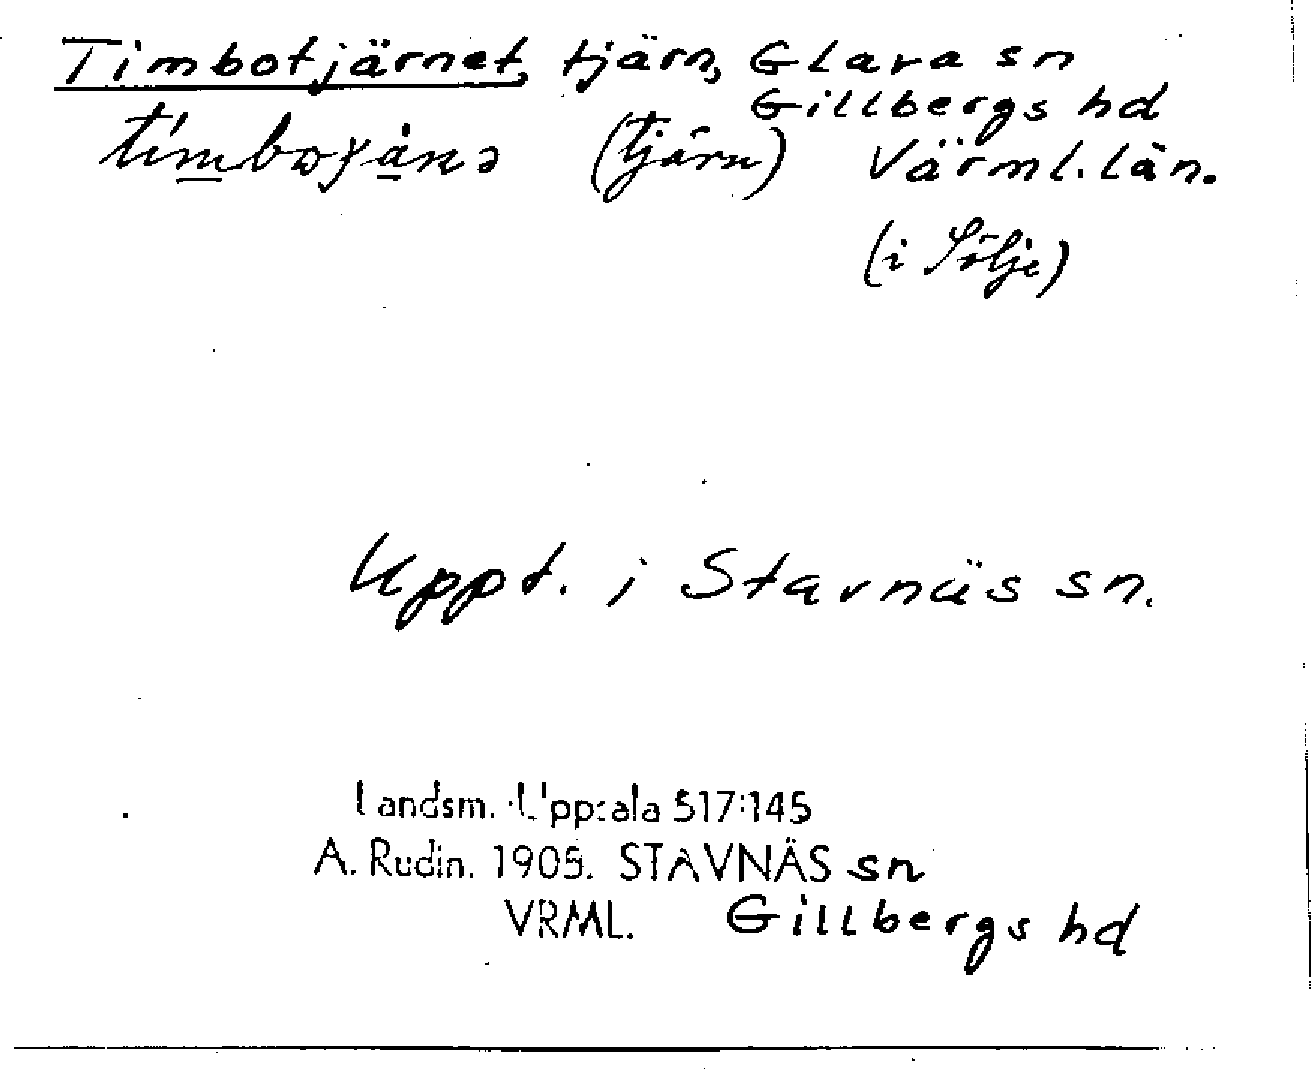 Timbotjärnet, tjärn, Glava sn
Gillbergs hd
(tjärn) Värml. län.
(i Sölje)
Uppt. i Stavnäs sn.
Landsm. Uppsala 517:145
A. Rudin. 1905. STAVNÄS sn
VRML. Gillbergs hd